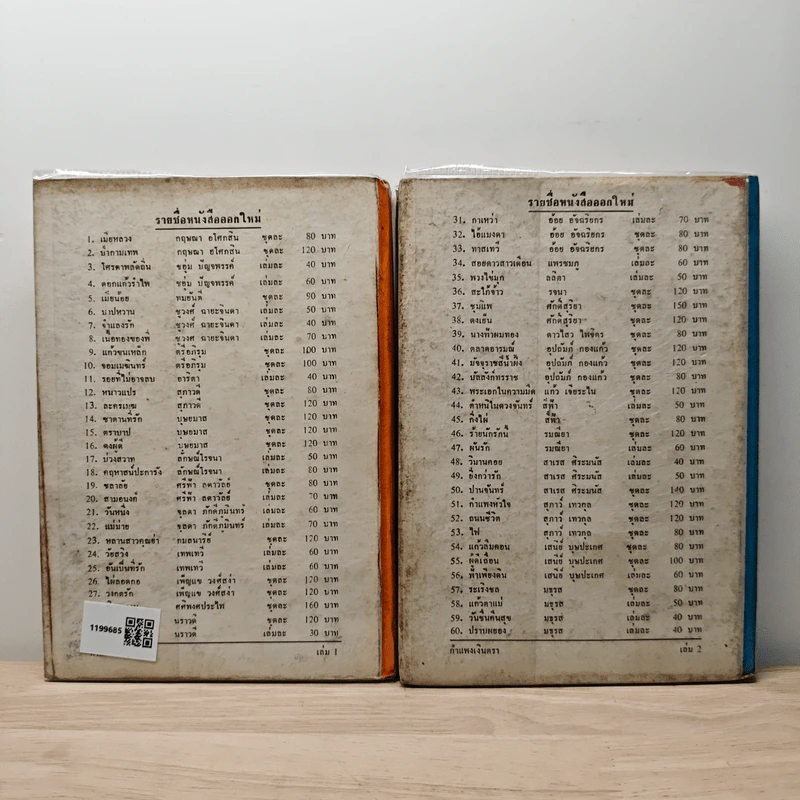 รายชื่อหนังสือออกใหม่
1. เมียหลวง กฤษณา อโศกสิน ชุดละ 80 บาท
2. น้ำกามเทพ กฤษณา อโศกสิน ชุดละ 120 บาท
3. โศรดาพลัดถิ่น ชอุ่ม ปัญจพรรค์ เล่มละ 40 บาท
4. ดอกแก้วรำไพ ชอุ่ม ปัญจพรรค์ เล่มละ 60 บาท
5. เมียน้อย ทมยันตี ชุดละ 90 บาท
6. บาปหวาน ชูวงศ์ ฉายะจินดา เล่มละ 50 บาท
7. จำเลยรัก ชูวงศ์ ฉายะจินดา เล่มละ 40 บาท
8. เนื้อทองของพี่ ชูวงศ์ ฉายะจินดา เล่มละ 70 บาท
9. แก้วขนเหล็ก ตรีอภิรุม ชุดละ 100 บาท
10. จอมเมฆินทร์ ตรีอภิรุม ชุดละ 100 บาท
11. รอยที่ไม่อาจลบ อาริตา เล่มละ 40 บาท
12. หนาวแปร สุภาวดี ชุดละ 80 บาท
13. ละครเมฆ สุภาวดี ชุดละ 120 บาท
14. ซาตานที่รัก บุษยมาส ชุดละ 120 บาท
15. ตราบาป บุษยมาส ชุดละ 120 บาท
16. ดงผู้ดี บุษยมาส ชุดละ 120 บาท
17. บ่วงสวาท ลักษณ์โรจนา เล่มละ 50 บาท
18. คฤหาสน์ปะการัง ลักษณ์โรจนา เล่มละ 80 บาท
19. ชลาลัย ศรีฟ้า ลดาวัลย์ ชุดละ 80 บาท
20. สามอนงค์ ศรีฟ้า ลดาวัลย์ เล่มละ 70 บาท
21. วันหนึ่ง ชุลดา ภักดีภูมินทร์ เล่มละ 60 บาท
22. แม่ม่าย ชุลดา ภักดีภูมินทร์ เล่มละ 70 บาท
23. หลานสาวคุณย่า กมลนารีย์ ชุดละ 120 บาท
24. วัยสวิง เทพเทวี เล่มละ 60 บาท
25. อันเป็นที่รัก เทพเทวี เล่มละ 60 บาท
26. ไผ่ลอดกอ เพ็ญแข วงศ์สง่า ชุดละ 120 บาท
27. วงกตรัก เพ็ญแข วงศ์สง่า ชุดละ 120 บาท
ศศิพงศ์ประไพ ชุดละ 160 บาท
นราวดี ชุดละ 120 บาท
นราวดี เล่มละ 30 บาท
1199685
เล่ม 1
รายชื่อหนังสือออกใหม่
31. กาเหว่า อ้อย อัจฉริยกร เล่มละ 70 บาท
32. ไอ้แมงดา อ้อย อัจฉริยกร ชุดละ 80 บาท
33. ทาสเทวี อ้อย อัจฉริยกร ชุดละ 80 บาท
34. สอยดาวสาวเดือน แพรชมภู เล่มละ 60 บาท
35. พวงไข่มุก ลลิตา เล่มละ 50 บาท
36. สะใภ้จ้าว รจนา ชุดละ 120 บาท
37. ชุมแพ ศักดิ์สุริยา ชุดละ 150 บาท
38. ดงเย็น ศักดิ์สุริยา ชุดละ 120 บาท
39. นางฟ้าผมทอง ดาวใสว ไพจิตร ชุดละ 80 บาท
40. ตลาดอารมณ์ อุปถัมภ์ กองแก้ว ชุดละ 120 บาท
41. มัจจุราชสีน้ำผึ้ง อุปถัมภ์ กองแก้ว ชุดละ 120 บาท
42. บัลลังก์ทรราช อุปถัมภ์ กองแก้ว ชุดละ 80 บาท
43. พระเอกในความมืด แก้ว เจียระไน ชุดละ 120 บาท
44. ตำหนีในดวงจันทร์ สีฟ้า เล่มละ 50 บาท
45. กิ่งไผ่ สีฟ้า ชุดละ 80 บาท
46. ร้ายนักรักนี้ รมณียา ชุดละ 120 บาท
47. ฝนรัก รมณียา เล่มละ 60 บาท
48. วิมานคอย สาเรศ ศิระมนัส เล่มละ 40 บาท
49. ยิ่งกว่ารัก สาเรศ ศิระมนัส เล่มละ 50 บาท
50. ปานจันทร์ สาเรศ ศิระมนัส ชุดละ 140 บาท
51. กำแพงหัวใจ สุภาว์ เทวกุล ชุดละ 120 บาท
52. ถนนชีวิต สุภาว์ เทวกุล ชุดละ 120 บาท
53. ไฟ สุภาว์ เทวกุล ชุดละ 120 บาท
54. แก้วลืมคอน เสนีย์ บุษปะเกศ ชุดละ 80 บาท
55. ผู้ดีเถื่อน เสนีย์ บุษปะเกศ ชุดละ 100 บาท
56. ฟ้าเพียงดิน เสนีย์ บุษปะเกศ เล่มละ 60 บาท
57. ระเริงชล มธุรส ชุดละ 80 บาท
58. แก้วตาแม่ มธุรส เล่มละ 50 บาท
59. วันชื่นคืนสุข มธุรส เล่มละ 40 บาท
60. ปราบพยอง มธุรส เล่มละ 40 บาท
กำแพงเงินตรา เล่ม 2